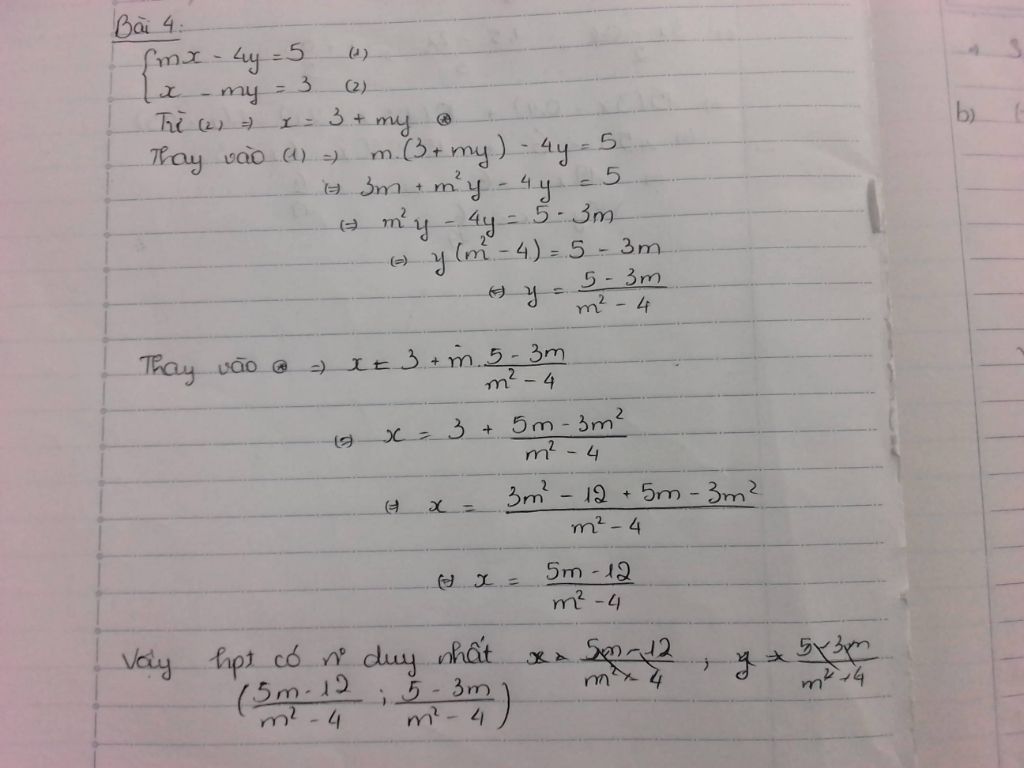 Bài 4:
{mx - 4y = 5 (1)
{x - my = 3 (2)
Từ (2) => x = 3 + my ⊛
Thay vào (1) => m.(3 + my) - 4y = 5
<=> 3m + m²y - 4y = 5
<=> m²y - 4y = 5 - 3m
<=> y(m² - 4) = 5 - 3m
<=> y = (5 - 3m)/(m² - 4)
Thay vào ⊛ => x = 3 + m.(5 - 3m)/(m² - 4)
<=> x = 3 + (5m - 3m²)/(m² - 4)
<=> x = (3m² - 12 + 5m - 3m²)/(m² - 4)
<=> x = (5m - 12)/(m² - 4)
Vậy hpt có n° duy nhất x = (5m - 12)/(m² - 4) ; y = (5 - 3m)/(m² - 4)
((5m - 12)/(m² - 4) ; (5 - 3m)/(m² - 4))
b)